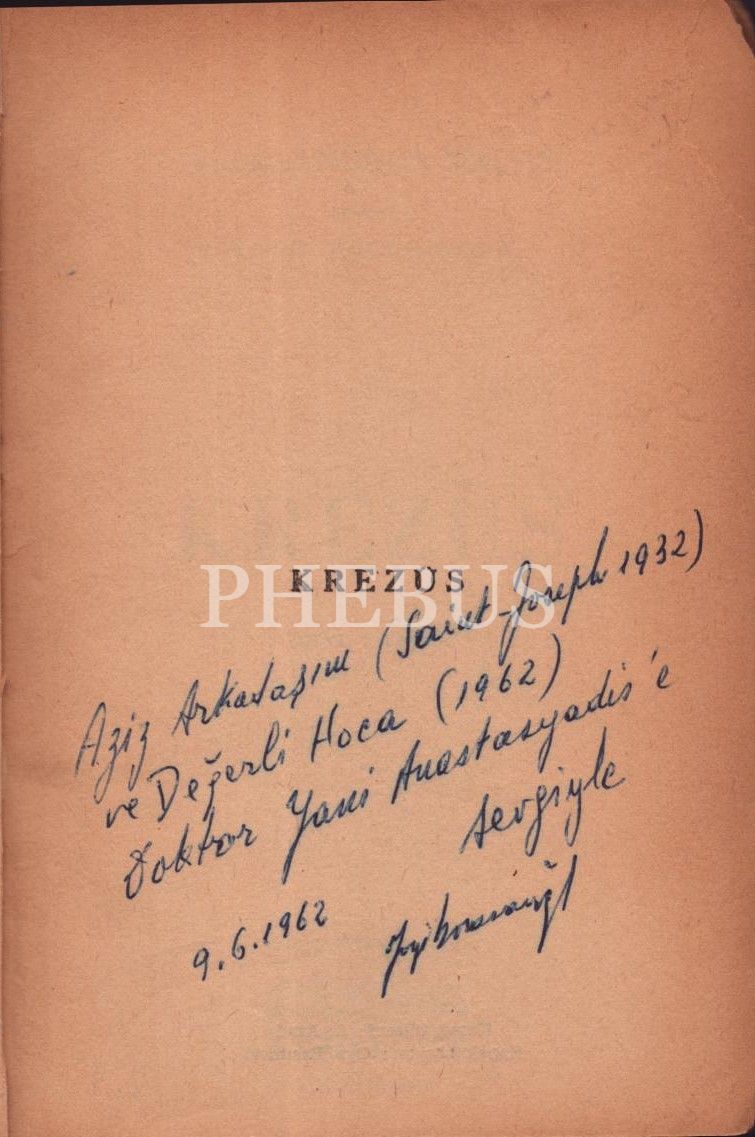 KREZÜS
PHEBUS
Aziz Arkadaşım (Saint-Joseph 1932)
ve Değerli Hoca (1962)
Doktor Yani Anastasyadis'e
sevgiyle
9.6.1962